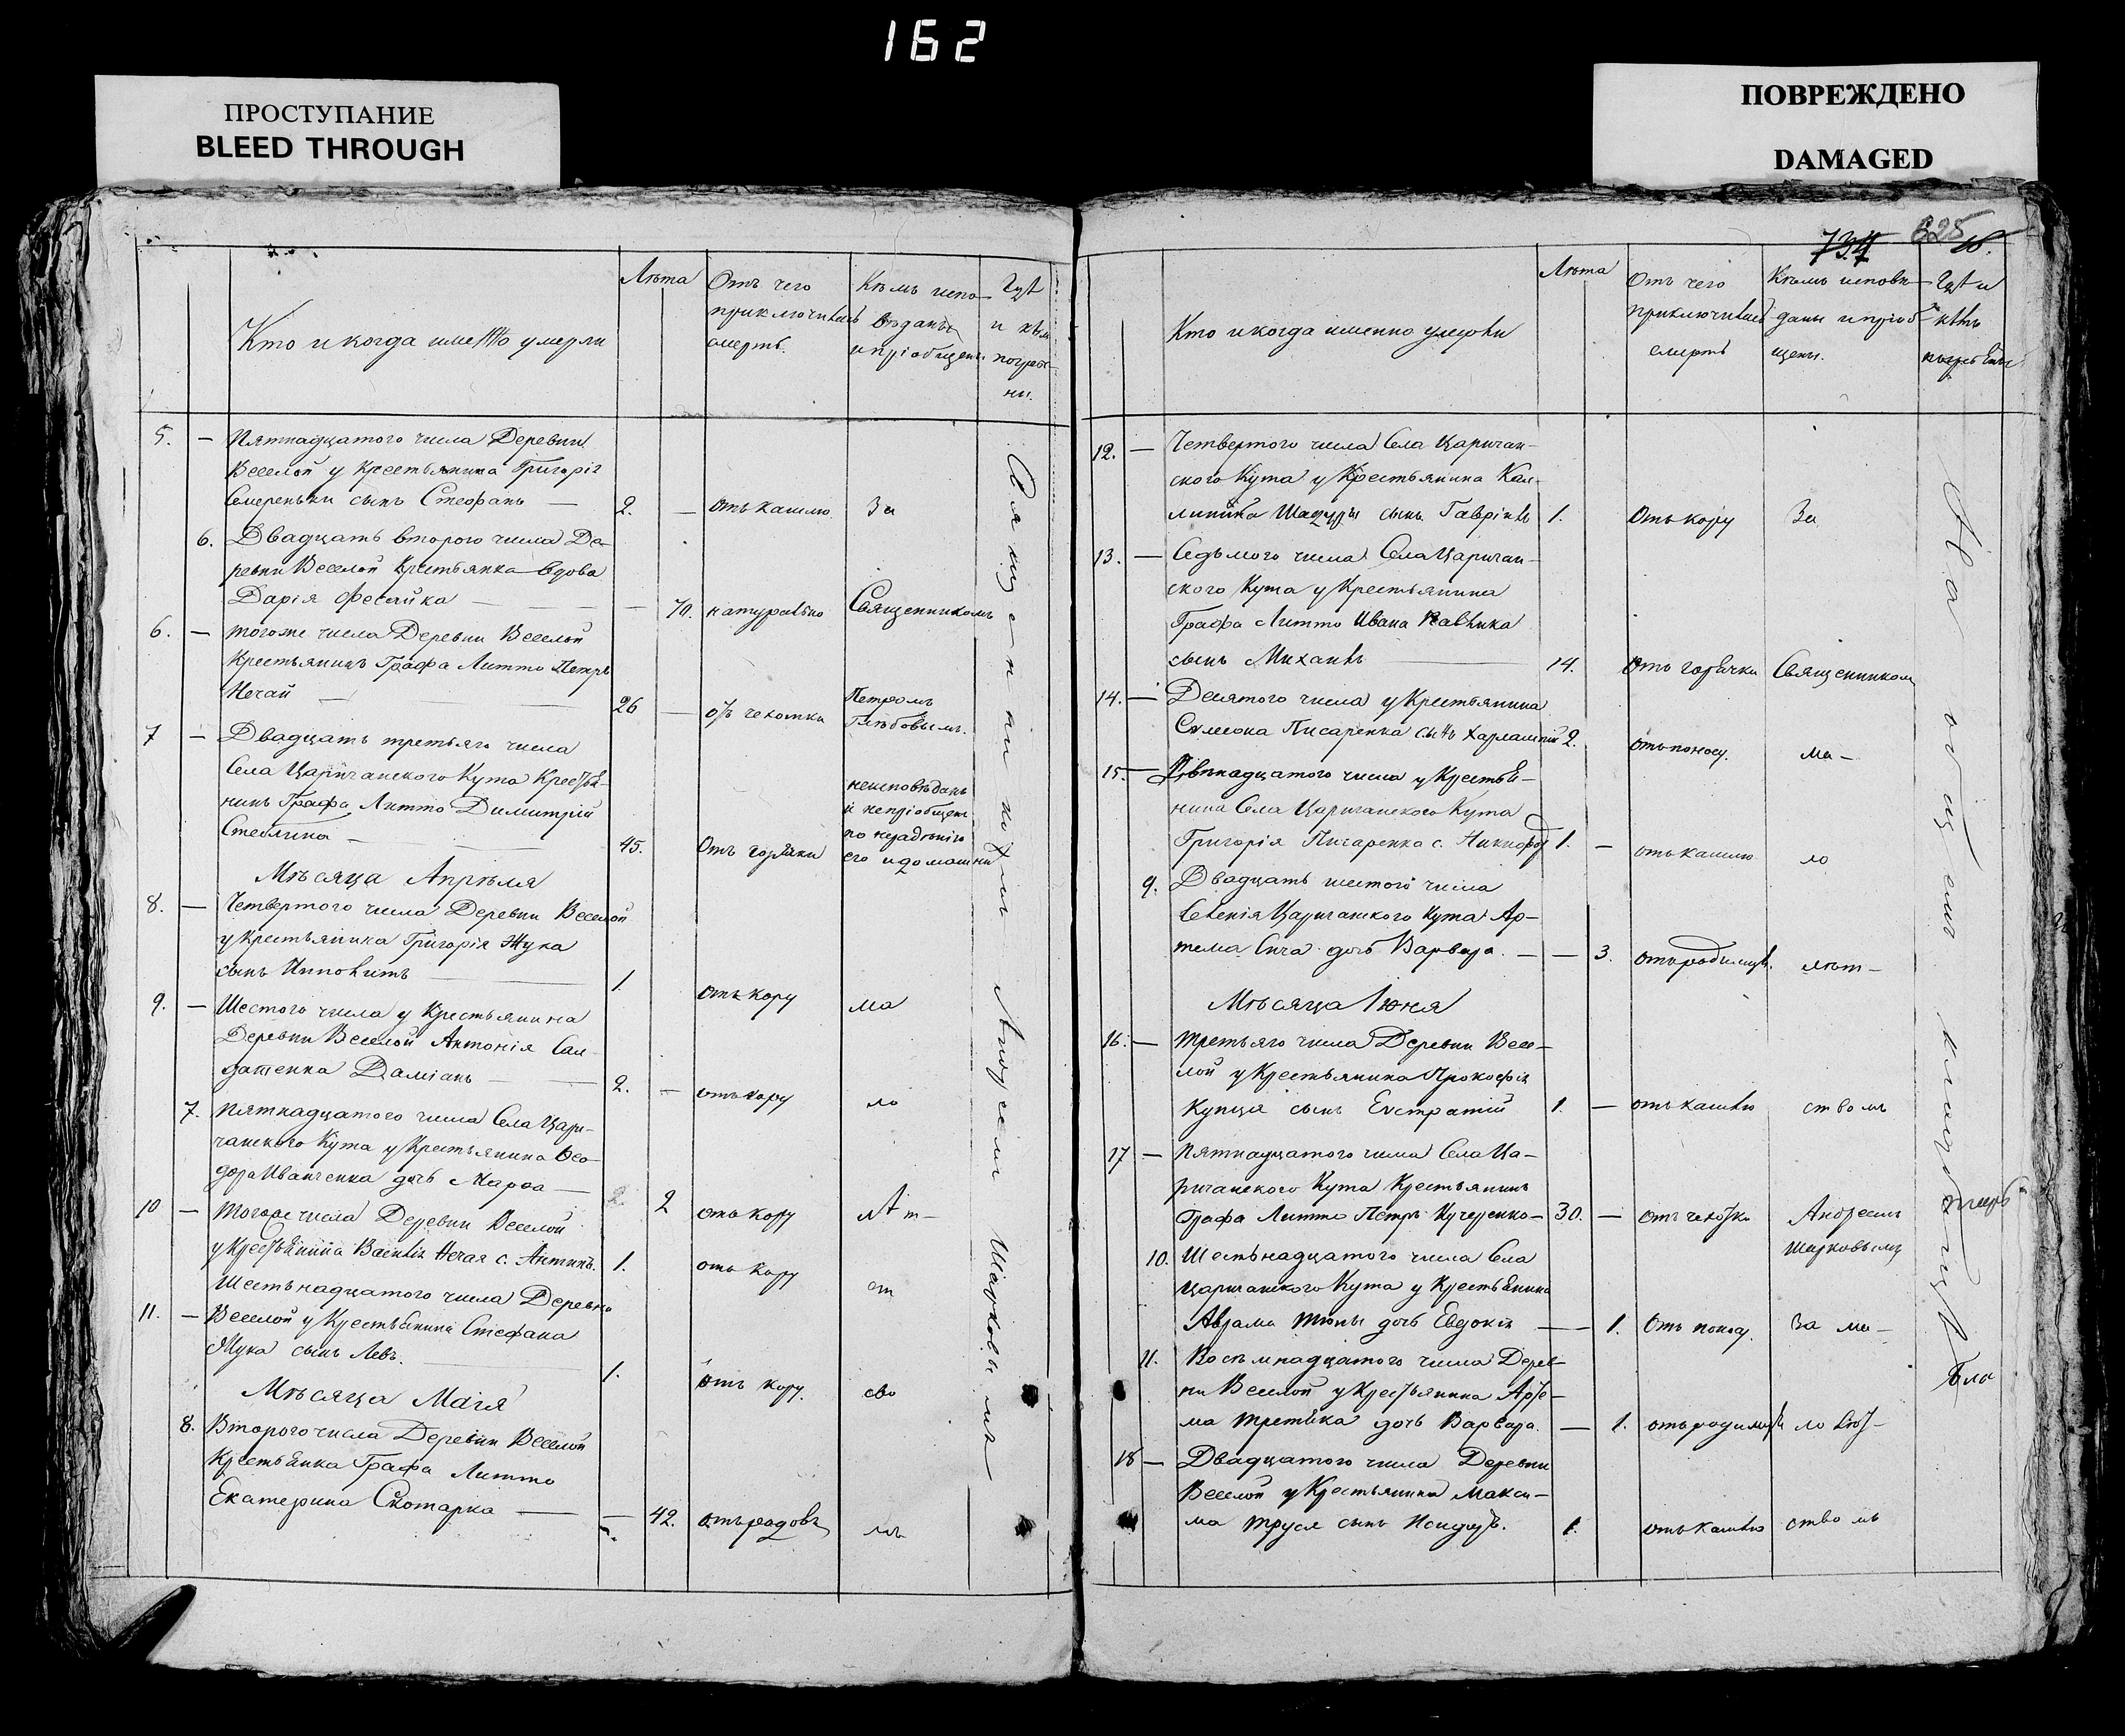 162
ПРОСТУПАНИЕ
BLEED THROUGH
ПОВРЕЖДЕНО
DAMAGED
Лѣта
Отъ чего
приключилась
смерть.
Кѣмъ испо-
вѣданъ
и пріобщенъ
Гдѣ
и кѣмъ
погребе-
ны.
Кто и когда именно умерли
5. — Пятнадцатого числа Деревни
Веселой у Крестьянина Григорія
Смереньки сынъ Стефанъ — 2. — отъ кашлю За
6. Двадцать второго числа Де-
ревни Веселой Крестьянка вдова
Дарія Фесайка — — 70. натурально Священникомъ
6. — тогоже числа Деревни Веселой
Крестьянинъ Графа Литто Петръ
Нечай — 26 — отъ чехотки Петромъ
Глѣбовымъ.
7 — Двадцать третьяго числа
Села Царичанского Кута Крестья-
нинъ Графа Литто Димитрій
Стеблина — 45. Отъ горячки
неисповѣданъ
и непріобщенъ
по
его
Мѣсяца Апрѣля
8. — Четвертого числа Деревни Веселой
у Крестьянина Григорія Жука
сынъ Ипполитъ — 1. отъ кору ма
9. — Шестого числа у Крестьянина
Деревни Веселой Антонія Сал-
датенка Даміанъ — 2. — отъ кору ло
7. Пятнадцатого числа Села Цари-
чанского Кута у Крестьянина Ѳео-
дора Иванченка дочь Марѳа — 2 отъ кору лѣт-
10 — Тогоже числа Деревни Веселой
у Крестьянина Василія Нечая с. Антипъ. 1. отъ кору ст
Шестьнадцатого числа Деревни
11. — Веселой у Крестьянина Стефана
Жука сынъ Левъ. 1. отъ кору. во
Мѣсяца Маія
8. Второго числа Деревни Веселой
Крестьянка Графа Литто
Екатерина Скотарка — — 42. отъ родовъ мъ
Священникомъ Андреемъ Шарковымъ
734 625
Лѣта
Отъ чего
приключилась
смерть
Кѣмъ исповѣ-
даны и пріоб-
щены.
Гдѣ и
кѣмъ
погребены
Кто и когда именно умерли
12. — Четвертого числа Села Царичан-
ского Кута у Крестьянина Кал-
линика Шадуры сынъ Гавріилъ 1. Отъ кору За
13. — Седьмого числа Села Царичан-
ского Кута у Крестьянина
Графа Литто Ивана
сынъ Михаилъ — 14. Отъ горячки Священником
14. — Десятого числа у Крестьянина
Симеона Писаренка сынъ Харлампій 2. отъ поносу. ма-
15. — Двѣнадцатого числа у Крестья-
нина Села Царичанского Кута
Григорія Писаренка с. Никифор 1. — отъ кашлю ло
9. Двадцать шестого числа
Селенія Царичанского Кута Ар-
тема Сича дочь Варвара. — — 3. отъ родимцѣ. лѣт-
Мѣсяца Іюня
16. — третьяго числа Деревни Весе-
лой у Крестьянина Прокофія
Купця сынъ Евстратій 1. — отъ кашлю ствомъ
17 — Пятнадцатого числа Села Ца-
ричанского Кута Крестьянинъ
Графа Литто Петръ Кучеренко — 30. — отъ чехотки Андреемъ
Шарковымъ
10. Шестьнадцатого числа Села
Царичанского Кута у Крестьянина
Аврама Тюпы дочь Евдокія — — 1. Отъ поносу. За ма-
11. Восемнадцатого числа Дерев-
ни Веселой у Крестьянина Арте-
ма Третяка дочь Варвара. — 1. отъ родимцѣ лолѣт-
18 — Двадцатого числа Деревни
Веселой у Крестьянина Макси-
ма Труся сынъ Исидоръ. 1. отъ кашлю ствомъ
На общемъ кладбищѣ